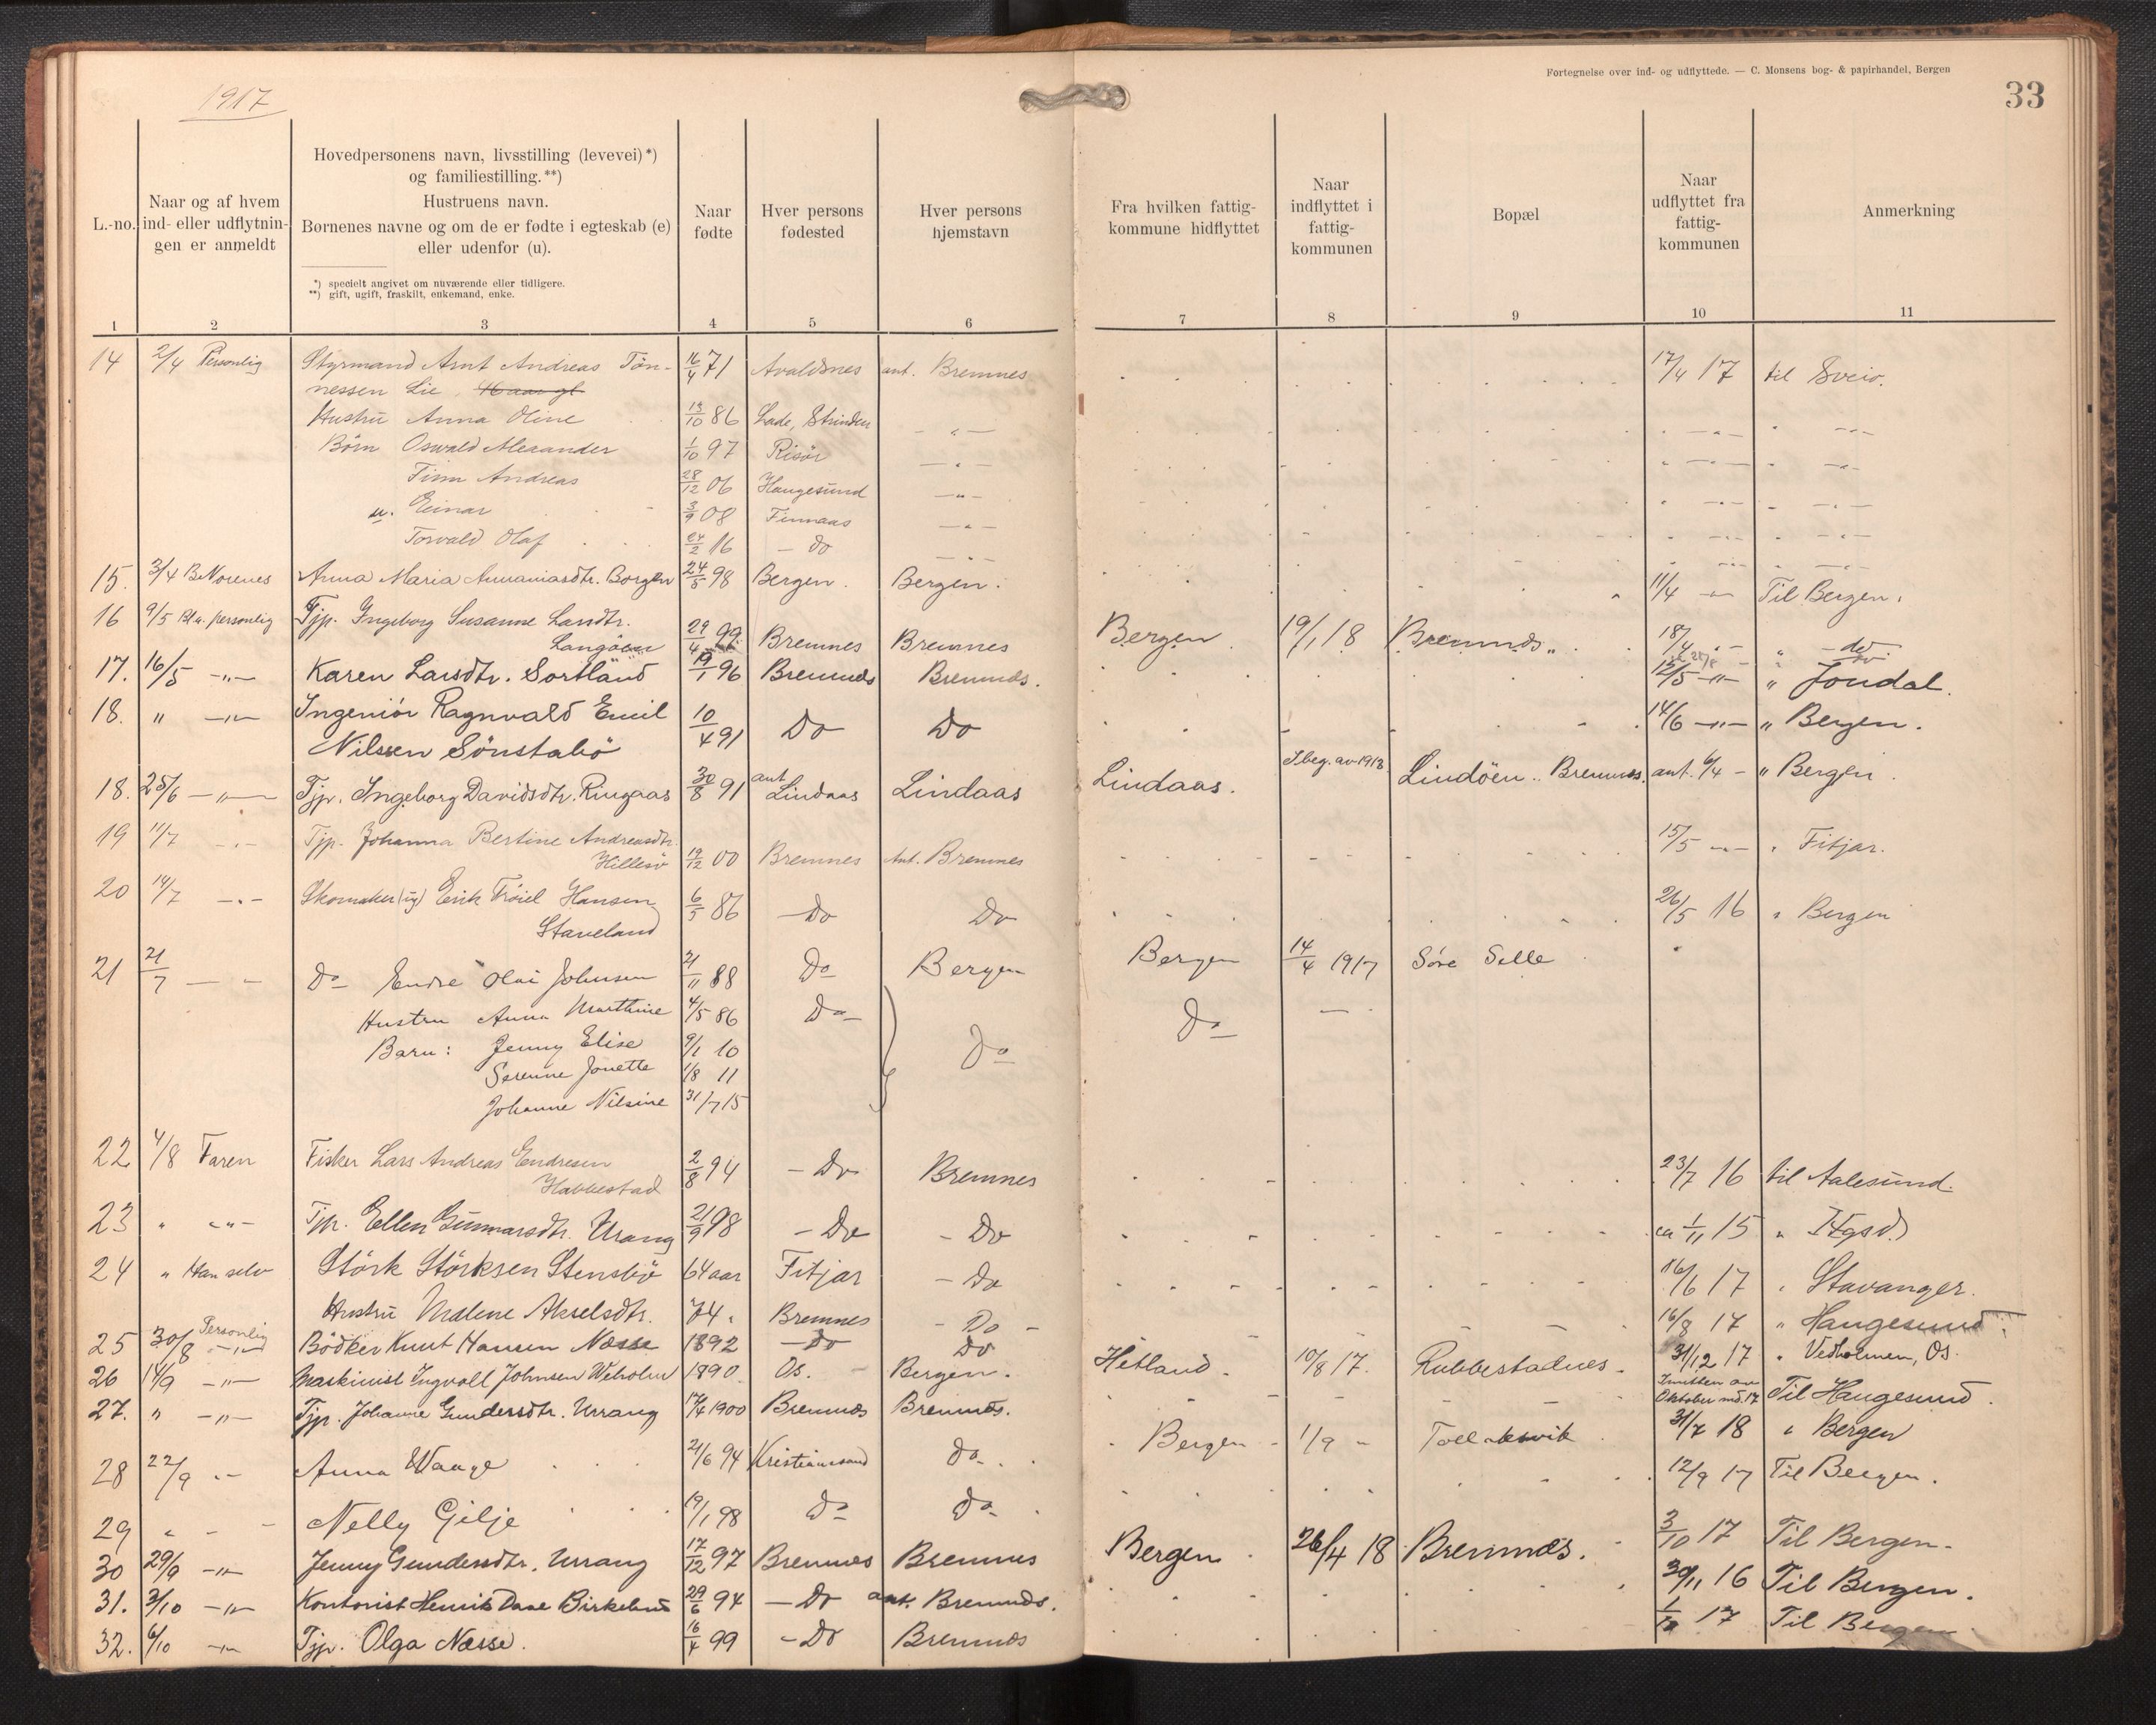 1917
Fortegnelse over ind- og udflyttede. — C. Monsens bog- & papirhandel, Bergen
33
L.-no.
Naar og af hvem
ind- eller udflytnin-
gen er anmeldt
Hovedpersonens navn, livsstilling (levevei)*)
og familiestilling.**)
Hustruens navn.
Børnenes navne og om de er fødte i egteskab (e)
eller udenfor (u).
*) specielt angivet om nuværende eller tidligere.
**) gift, ugift, fraskilt, enkemand, enke.
Naar
fødte
Hver persons
fødested
Hver persons
hjemstavn
Fra hvilken fattig-
kommune hidflyttet
Naar
indflyttet i
fattig-
kommunen
Bopæl
Naar
udflyttet fra
fattig-
kommunen
Anmerkning
1 2 3 4 5 6 7 8 9 10 11
14 2/4 Personlig Styrmand Arnt Andreas Tøn- 16/4 71 Avaldsnes ant. Bremnes 17/4 17 til Sveio.
nessen Lie
Hustru Anna Oline /10 86 Lade, Strinden - " -
Børn Oswald Alexander 1/10 97 Risør - " -
Finn Andreas 28/12 06 Haugesund - " -
u. Einar 3/9 08 Finnaas - " -
Torvald Olaf 24/2 16 - do - " -
15. 3/4 B. Norenes Anna Maria Annaniasdtr. Borgen 24/5 98 Bergen. Bergen. 11/4 - " - Til Bergen.
16 9/5 personlig Tjp. Ingeborg Susanne Larsdtr.
Langöen 29/4 99 Bremnes Bremnes Bergen 19/1 18 Bremnes 18/4 - " - " do
17. 16/5 - " - Karen Larsdtr. Sortland 19/1 96 Bremnes Bremnes. 12/5 - " - " Jondal.
18. " - " - Ingeniör Ragnvald Emil 10/4 91 Do Do 14/6 - " - " Bergen.
Nilssen Sönstabö
18. 25/6 - " - Tjp. Ingeborg Davidsdtr. Ringaas 30/8 91 ant Lindaas Lindaas Lindaas. I beg. av 1913 Lindöen. Bremnes. ant. 6/4 - " Bergen.
19 11/7 - " - Tjp. Johanna Bertine Andreasdtr.
Hillesö 19/12 00 Bremnes Ant. Bremnes 15/5 - " - " Fitjar.
20 14/7 - " - Skomaker (ug) Erik Trøiel Hansen 6/5 86 Do Do 26/5 16 " Bergen
Staveland
21 21/7 - - Do Endre Olai Johnsen 21/11 88 Do Bergen Bergen 14/4 1917 Söre Selle
Hustru Anna Marthine 4/5 86 Do Do
Barn: Jenny Elise 9/1 10 Do
Serenne Jonette 1/8 11
Johanne Nilsine 31/7 15
22 4/8 Faren Fisker Lars Andreas Endresen 2/8 94 - Do Bremnes 23/7 16 til Aalesund.
Habbestad
23 " - " - Tjp. Ellen Gunnarsdtr. Urang 21/9 98 - Do - Do ca 1/11 15 " Hgsd.
24 " Han selv Störk Störksen Stensbö 64 aar Fitjar - Do 16/6 17 " Stavanger.
Hustru Malene Akselsdtr. 74 " Bremnes - Do -
25 30/8 Personlig Bödker Knut Hansen Næsse 1892 - Do Do 16/8 17 " Haugesund.
26 14/9 - " - Maskinist Ingvald Johnsen Weholm 1890. Os. Bergen. Hetland. 10/8 17. Rubbestadnes. 31/12 17 " Vedholmen, Os.
27. " - " - Tjp. Johanne Gundersdtr. Urrang 17/4 1900 Bremnes Bremnes. I midten av
Oktober md. 17 Til Haugesund.
28 22/9 - " - Anna Waage 21/6 94 Kristianssand Do. Bergen 1/9 " Tollaksvik 31/7 18 " Bergen
29 " - - Nelly Gilje 19/1 98 Do Do. 12/9 17 Til Bergen.
30 29/9 - " - Jenny Gundersdtr. Urrang 17/12 97 Bremnes Bremnes Bergen 26/4 18 Bremnes. 3/10 17 Til Bergen.
31. 3/10 - " - Kontorist Henrik Dase Birkeland 29/6 94 - Do ant. Bremnes. 30/11 16 Til Bergen.
32. 6/10 - " - Tjp. Olga Næsse. 16/4 99 - Do Bremnes 1/10 17 Til Bergen